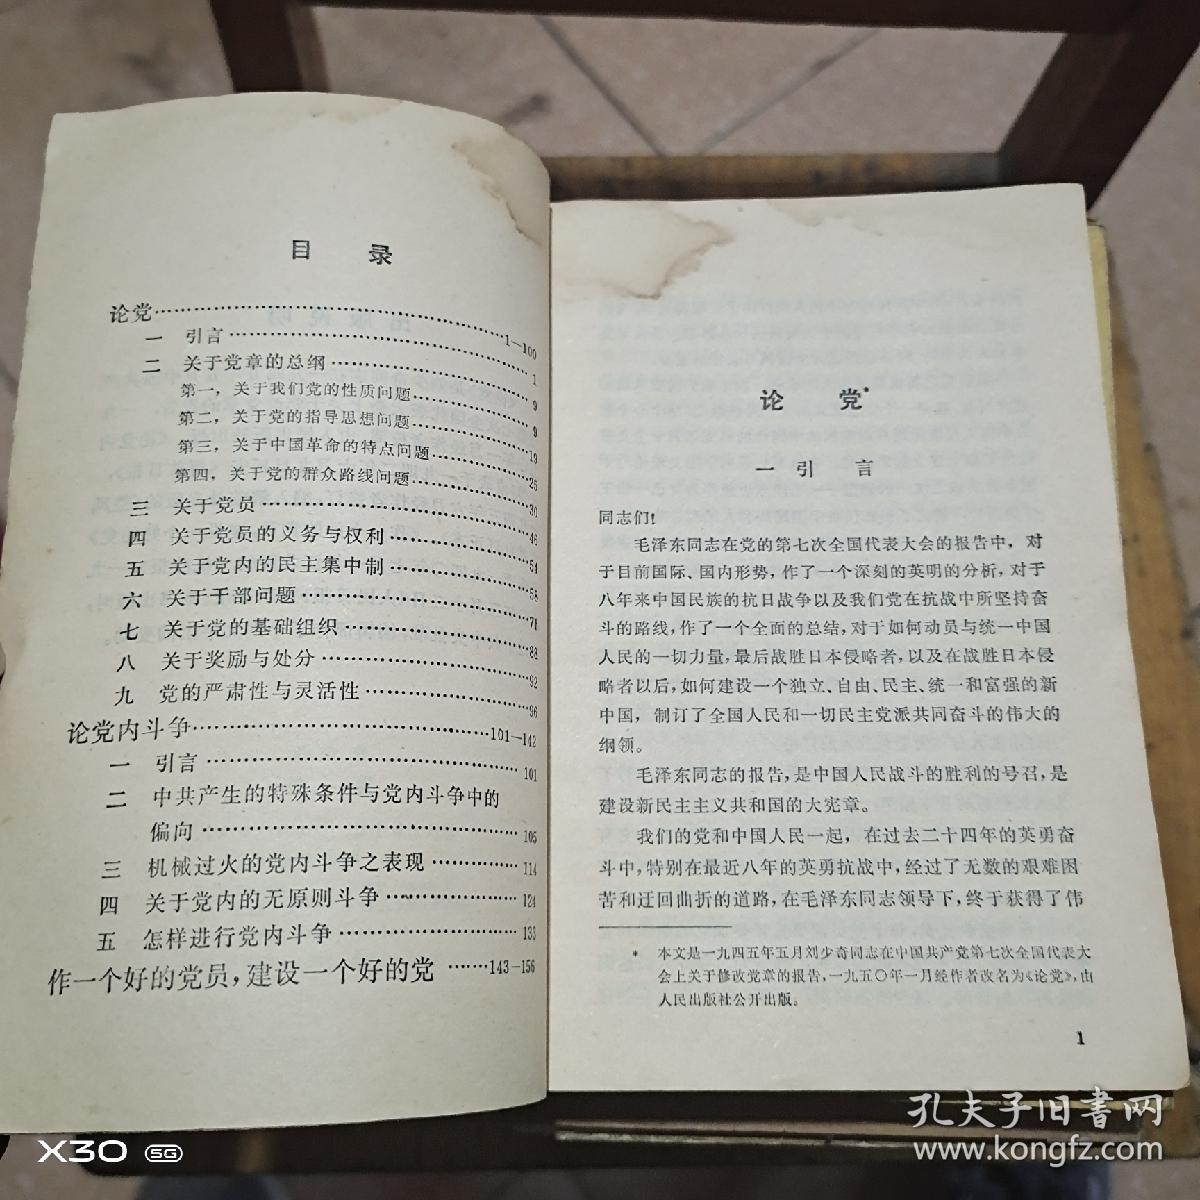 目 录
论党……1—100
一 引言……1
二 关于党章的总纲……9
第一，关于我们党的性质问题……9
第二，关于党的指导思想问题……19
第三，关于中国革命的特点问题……25
第四，关于党的群众路线问题……30
三 关于党员……46
四 关于党员的义务与权利……54
五 关于党内的民主集中制……58
六 关于干部问题……78
七 关于党的基础组织……88
八 关于奖励与处分……92
九 党的严肃性与灵活性……96
论党内斗争……101—142
一 引言……101
二 中共产生的特殊条件与党内斗争中的
偏向……105
三 机械过火的党内斗争之表现……114
四 关于党内的无原则斗争……124
五 怎样进行党内斗争……133
作一个好的党员，建设一个好的党……143—156
论 党*
一 引 言
同志们！
毛泽东同志在党的第七次全国代表大会的报告中，对
于目前国际、国内形势，作了一个深刻的英明的分析，对于
八年来中国民族的抗日战争以及我们党在抗战中所坚持奋
斗的路线，作了一个全面的总结，对于如何动员与统一中国
人民的一切力量，最后战胜日本侵略者，以及在战胜日本侵
略者以后，如何建设一个独立、自由、民主、统一和富强的新
中国，制订了全国人民和一切民主党派共同奋斗的伟大的
纲领。
毛泽东同志的报告，是中国人民战斗的胜利的号召，是
建设新民主主义共和国的大宪章。
我们的党和中国人民一起，在过去二十四年的英勇奋
斗中，特别在最近八年的英勇抗战中，经过了无数的艰难困
苦和迂回曲折的道路，在毛泽东同志领导下，终于获得了伟
* 本文是一九四五年五月刘少奇同志在中国共产党第七次全国代表大
会上关于修改党章的报告，一九五〇年一月经作者改名为《论党》，由
人民出版社公开出版。
1
X30 5G
孔夫子旧书网
www.kongfz.com